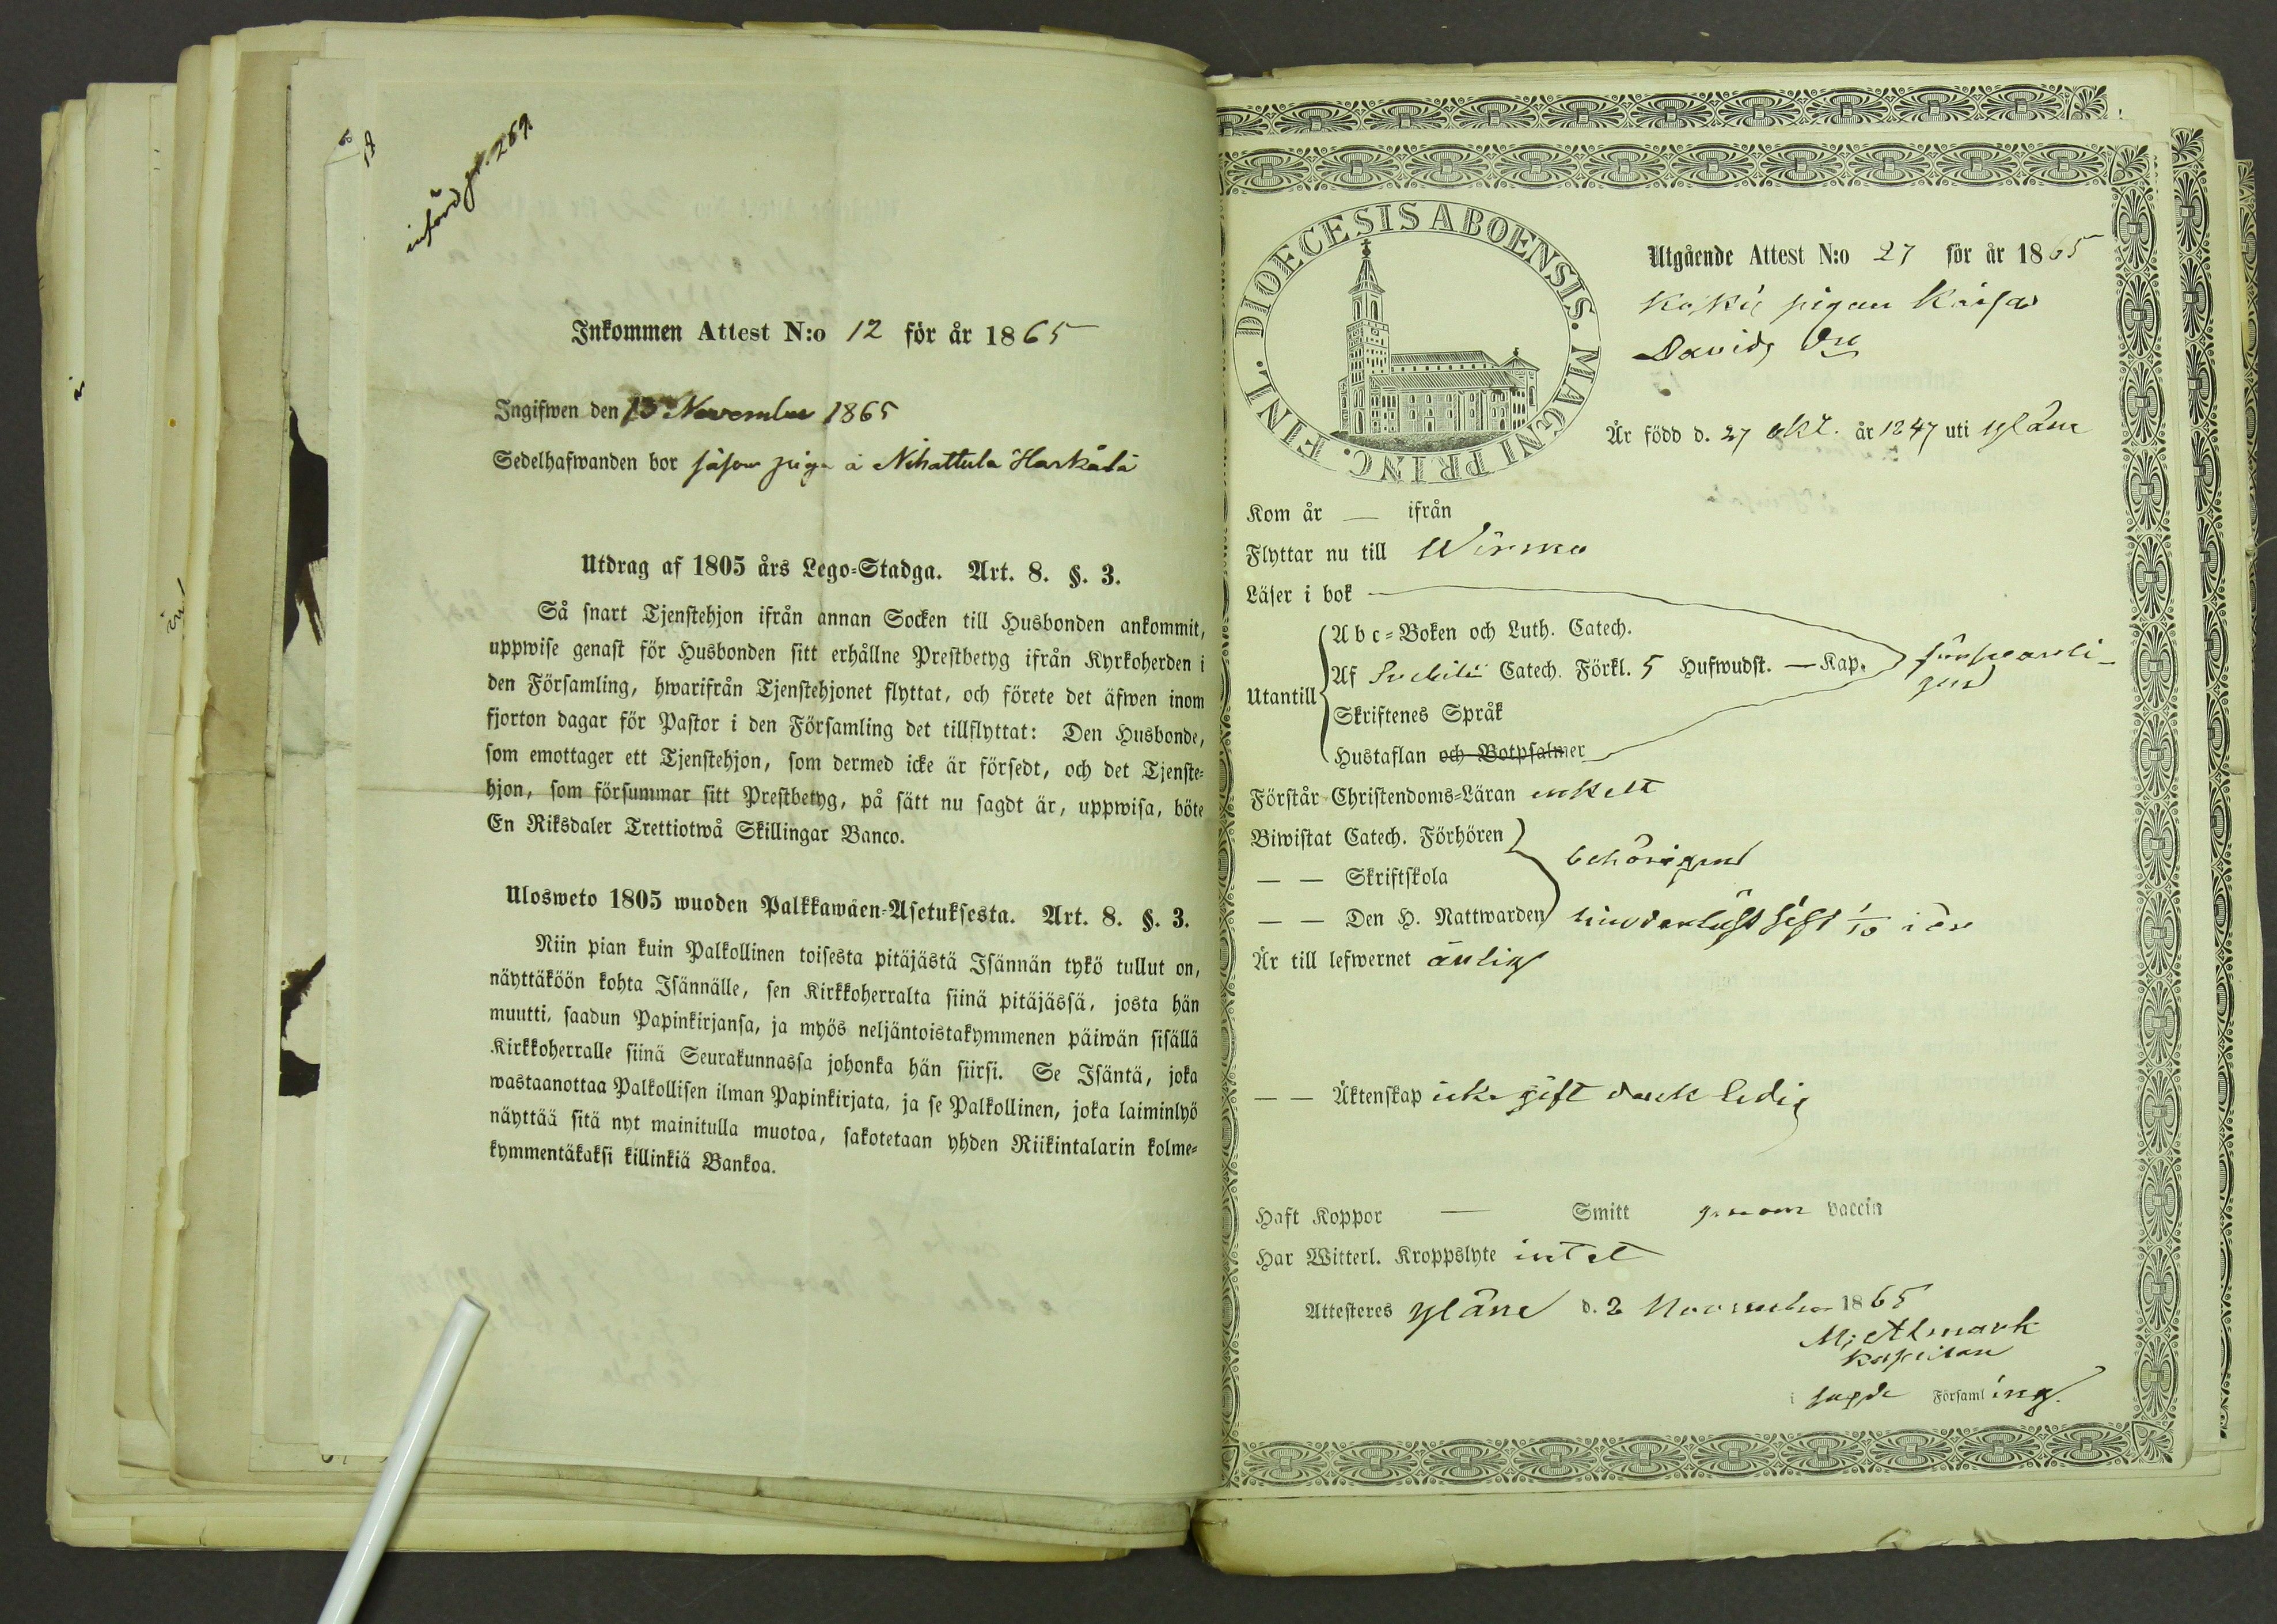 införd pag. 269
Inkommen Attest N:o 12 för år 1865
Ingifwen den 13 November 1865
Sedelhafwanden bor såsom piga å Nihattula Harkälä
Utdrag af 1805 års Lego-Stadga. Art. 8. §. 3.
Så snart Tjenstehjon ifrån annan Socken till Husbonden ankommit,
uppwise genast för Husbonden sitt erhållne Prestbetyg ifrån Kyrkoherden i
den Församling, hwarifrån Tjenstehjonet flyttat, och förete det äfwen inom
fjorton dagar för Pastor i den Församling det tillflyttat: Den Husbonde,
som emottager ett Tjenstehjon, som dermed icke är försedt, och det Tjenste-
hjon, som försummar sitt Prestbetyg, på sätt nu sagdt är, uppwisa, böte
En Riksdaler Trettiotwå Skillingar Banco.
Ulosweto 1805 wuoden Palkkawäen-Asetuksesta. Art. 8. §. 3.
Niin pian kuin Palkollinen toisesta pitäjästä Isännän tykö tullut on,
näyttäköön kohta Isännälle, sen Kirkkoherralta siinä pitäjässä, josta hän
muutti, saadun Papinkirjansa, ja myös neljäntoistakymmenen päiwän sisällä
Kirkkoherralle siinä Seurakunnassa johonka hän siirsi. Se Isäntä, joka
wastaanottaa Palkollisen ilman Papinkirjata, ja se Palkollinen, joka laiminlyö
näyttää sitä nyt mainitulla muotoa, sakotetaan yhden Riikintalarin kolme-
kymmentäkaksi killinkiä Bankoa.
FINL. DIOECESIS ABOENSIS. MAGNI PRINC.
Utgående Attest N:o 27 för år 1865
pigan Kaisa
Davids Dr
Är född d. 27 okt. år 1847 uti Yläne
Kom år — ifrån
Flyttar nu till Wirmo
Läser i bok
Utantill
Abc-Boken och Luth. Catech.
Af Svebilii Catech. Förkl. 5 Hufwudst. — Kap.
Skriftenes Språk
Hustaflan och Botpsalmer
försvarli-
gen
Förstår Christendoms-Läran enkelt
Biwistat Catech. Förhören
— — Skriftskola
behörigen
— — Den H. Nattwarden sist 1/10 i år
Är till lefwernet ärlig
— — Äktenskap icke gift ledig
Haft Koppor — Smitt genom vaccin
Har Witterl. Kroppslyte intet
Attesteres Yläne d. 2 November 1865
M; Almark
Kapellan
i sagde Församling.